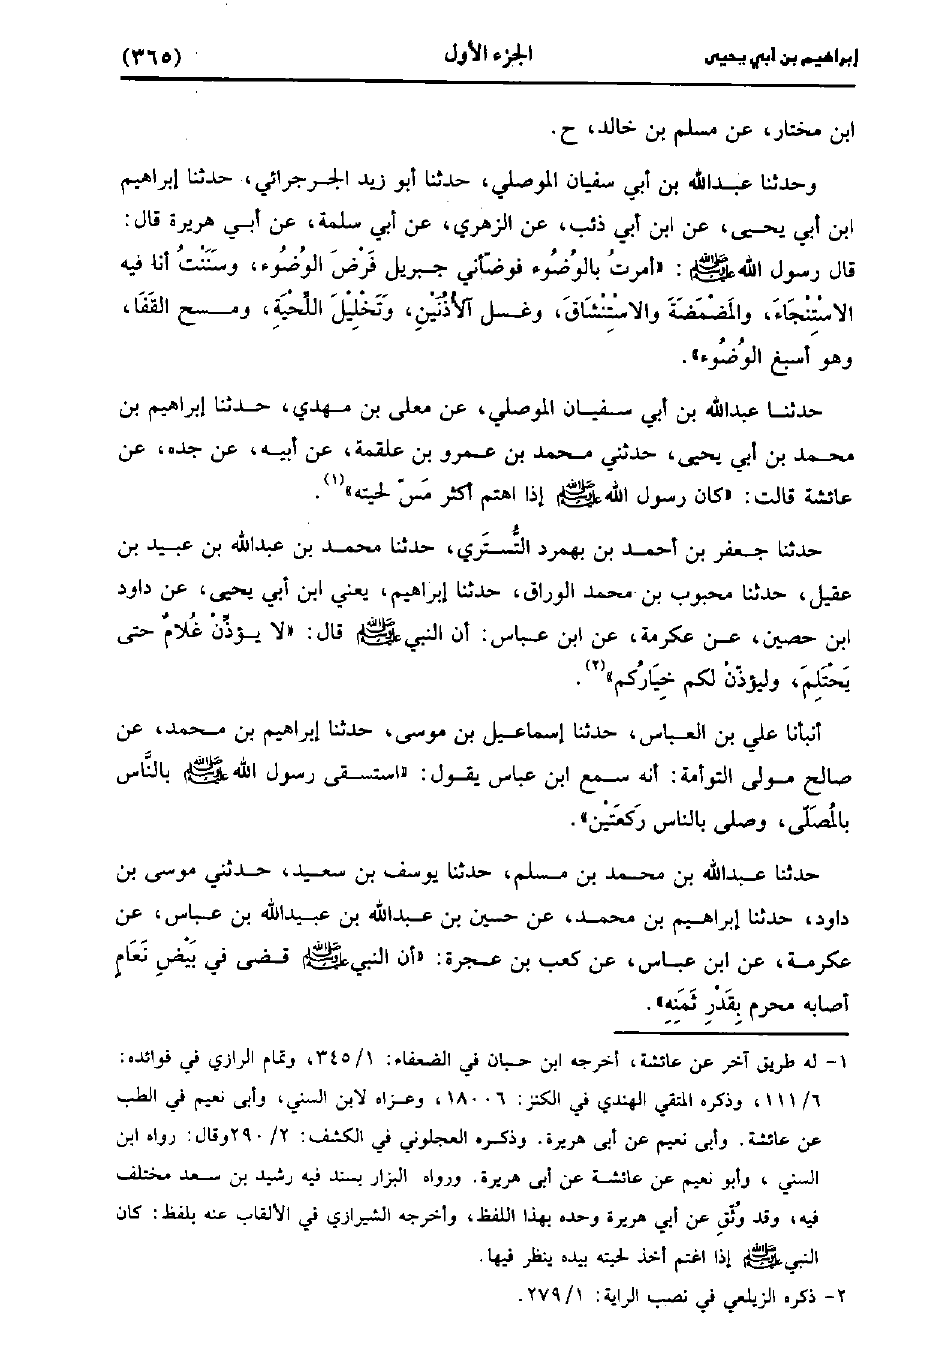 إبراهيم بن أبي يحيى الجزء الأول (٣٦٥)
ابن مختار، عن مسلم بن خالد، ح.
وحدثنا عبدالله بن أبي سفيان الموصلي، حدثنا أبو زيد الجرجرائي، حدثنا إبراهيم
ابن أبي يحيى، عن ابن أبي ذئب، عن الزهري، عن أبي سلمة، عن أبي هريرة قال:
قال رسول الله ﷺ: «أمرتُ بالوُضُوء فوضّأني جبريل فَرْضَ الوضُوء، وسَنَنْتُ أنا فيه
الاسْتِنْجَاءَ، والمَضْمَضَةَ والاسْتِنْشَاقَ، وغسل الأُذُنَيْنِ، وتَخْلِيْلَ اللَّحْيَةِ، ومسح القَفَا،
وهو أسبغ الوُضُوء».
حدثنا عبدالله بن أبي سفيان الموصلي، عن معلى بن مهدي، حدثنا إبراهيم بن
محمد بن أبي يحيى، حدثني محمد بن عمرو بن علقمة، عن أبيه، عن جده، عن
عائشة قالت: «كان رسول الله ﷺ إذا اهتم أكثر مَسّ لحيته»(١).
حدثنا جعفر بن أحمد بن بهمرد التُّستَري، حدثنا محمد بن عبدالله بن عبيد بن
عقيل، حدثنا محبوب بن محمد الوراق، حدثنا إبراهيم، يعني ابن أبي يحيى، عن داود
ابن حصين، عن عكرمة، عن ابن عباس: أن النبي ﷺ قال: «لا يؤذّنْ غُلامٌ حتى
يَحْتَلِمَ، وليؤذّنْ لكم خِيَارُكم»(٢).
أنبأنا علي بن العباس، حدثنا إسماعيل بن موسى، حدثنا إبراهيم بن محمد، عن
صالح مولى التوأمة: أنه سمع ابن عباس يقول: «استسقى رسول الله ﷺ بالنَّاس
بالمُصَلّى، وصلى بالناس رَكعَتَيْن».
حدثنا عبدالله بن محمد بن مسلم، حدثنا يوسف بن سعيد، حدثني موسى بن
داود، حدثنا إبراهيم بن محمد، عن حسين بن عبدالله بن عبيدالله بن عباس، عن
عكرمة، عن ابن عباس، عن كعب بن عجرة: «أن النبي ﷺ قضى في بَيْضِ نَعَامٍ
أصابه محرم بِقَدْرِ ثَمَنِهِ».
١- له طريق آخر عن عائشة، أخرجه ابن حبان في الضعفاء: ٣٤٥/١، وتمام الرازي في فوائده:
١١١/٦، وذكره المتقي الهندي في الكنز: ١٨٠٠٦، وعزاه لابن السني، وأبى نعيم في الطب
عن عائشة. وأبى نعيم عن أبى هريرة. وذكره العجلوني في الكشف: ٢٩٠/٢وقال: رواه ابن
السني ، وأبو نعيم عن عائشة عن أبى هريرة. ورواه البزار بسند فيه رشيد بن سعد مختلف
فيه، وقد وثّق عن أبي هريرة وحده بهذا اللفظ، وأخرجه الشيرازي في الألقاب عنه بلفظ: كان
النبي ﷺ إذا اغتم أخذ لحيته بيده ينظر فيها.
٢- ذكره الزيلعي في نصب الراية: ٢٧٩/١.